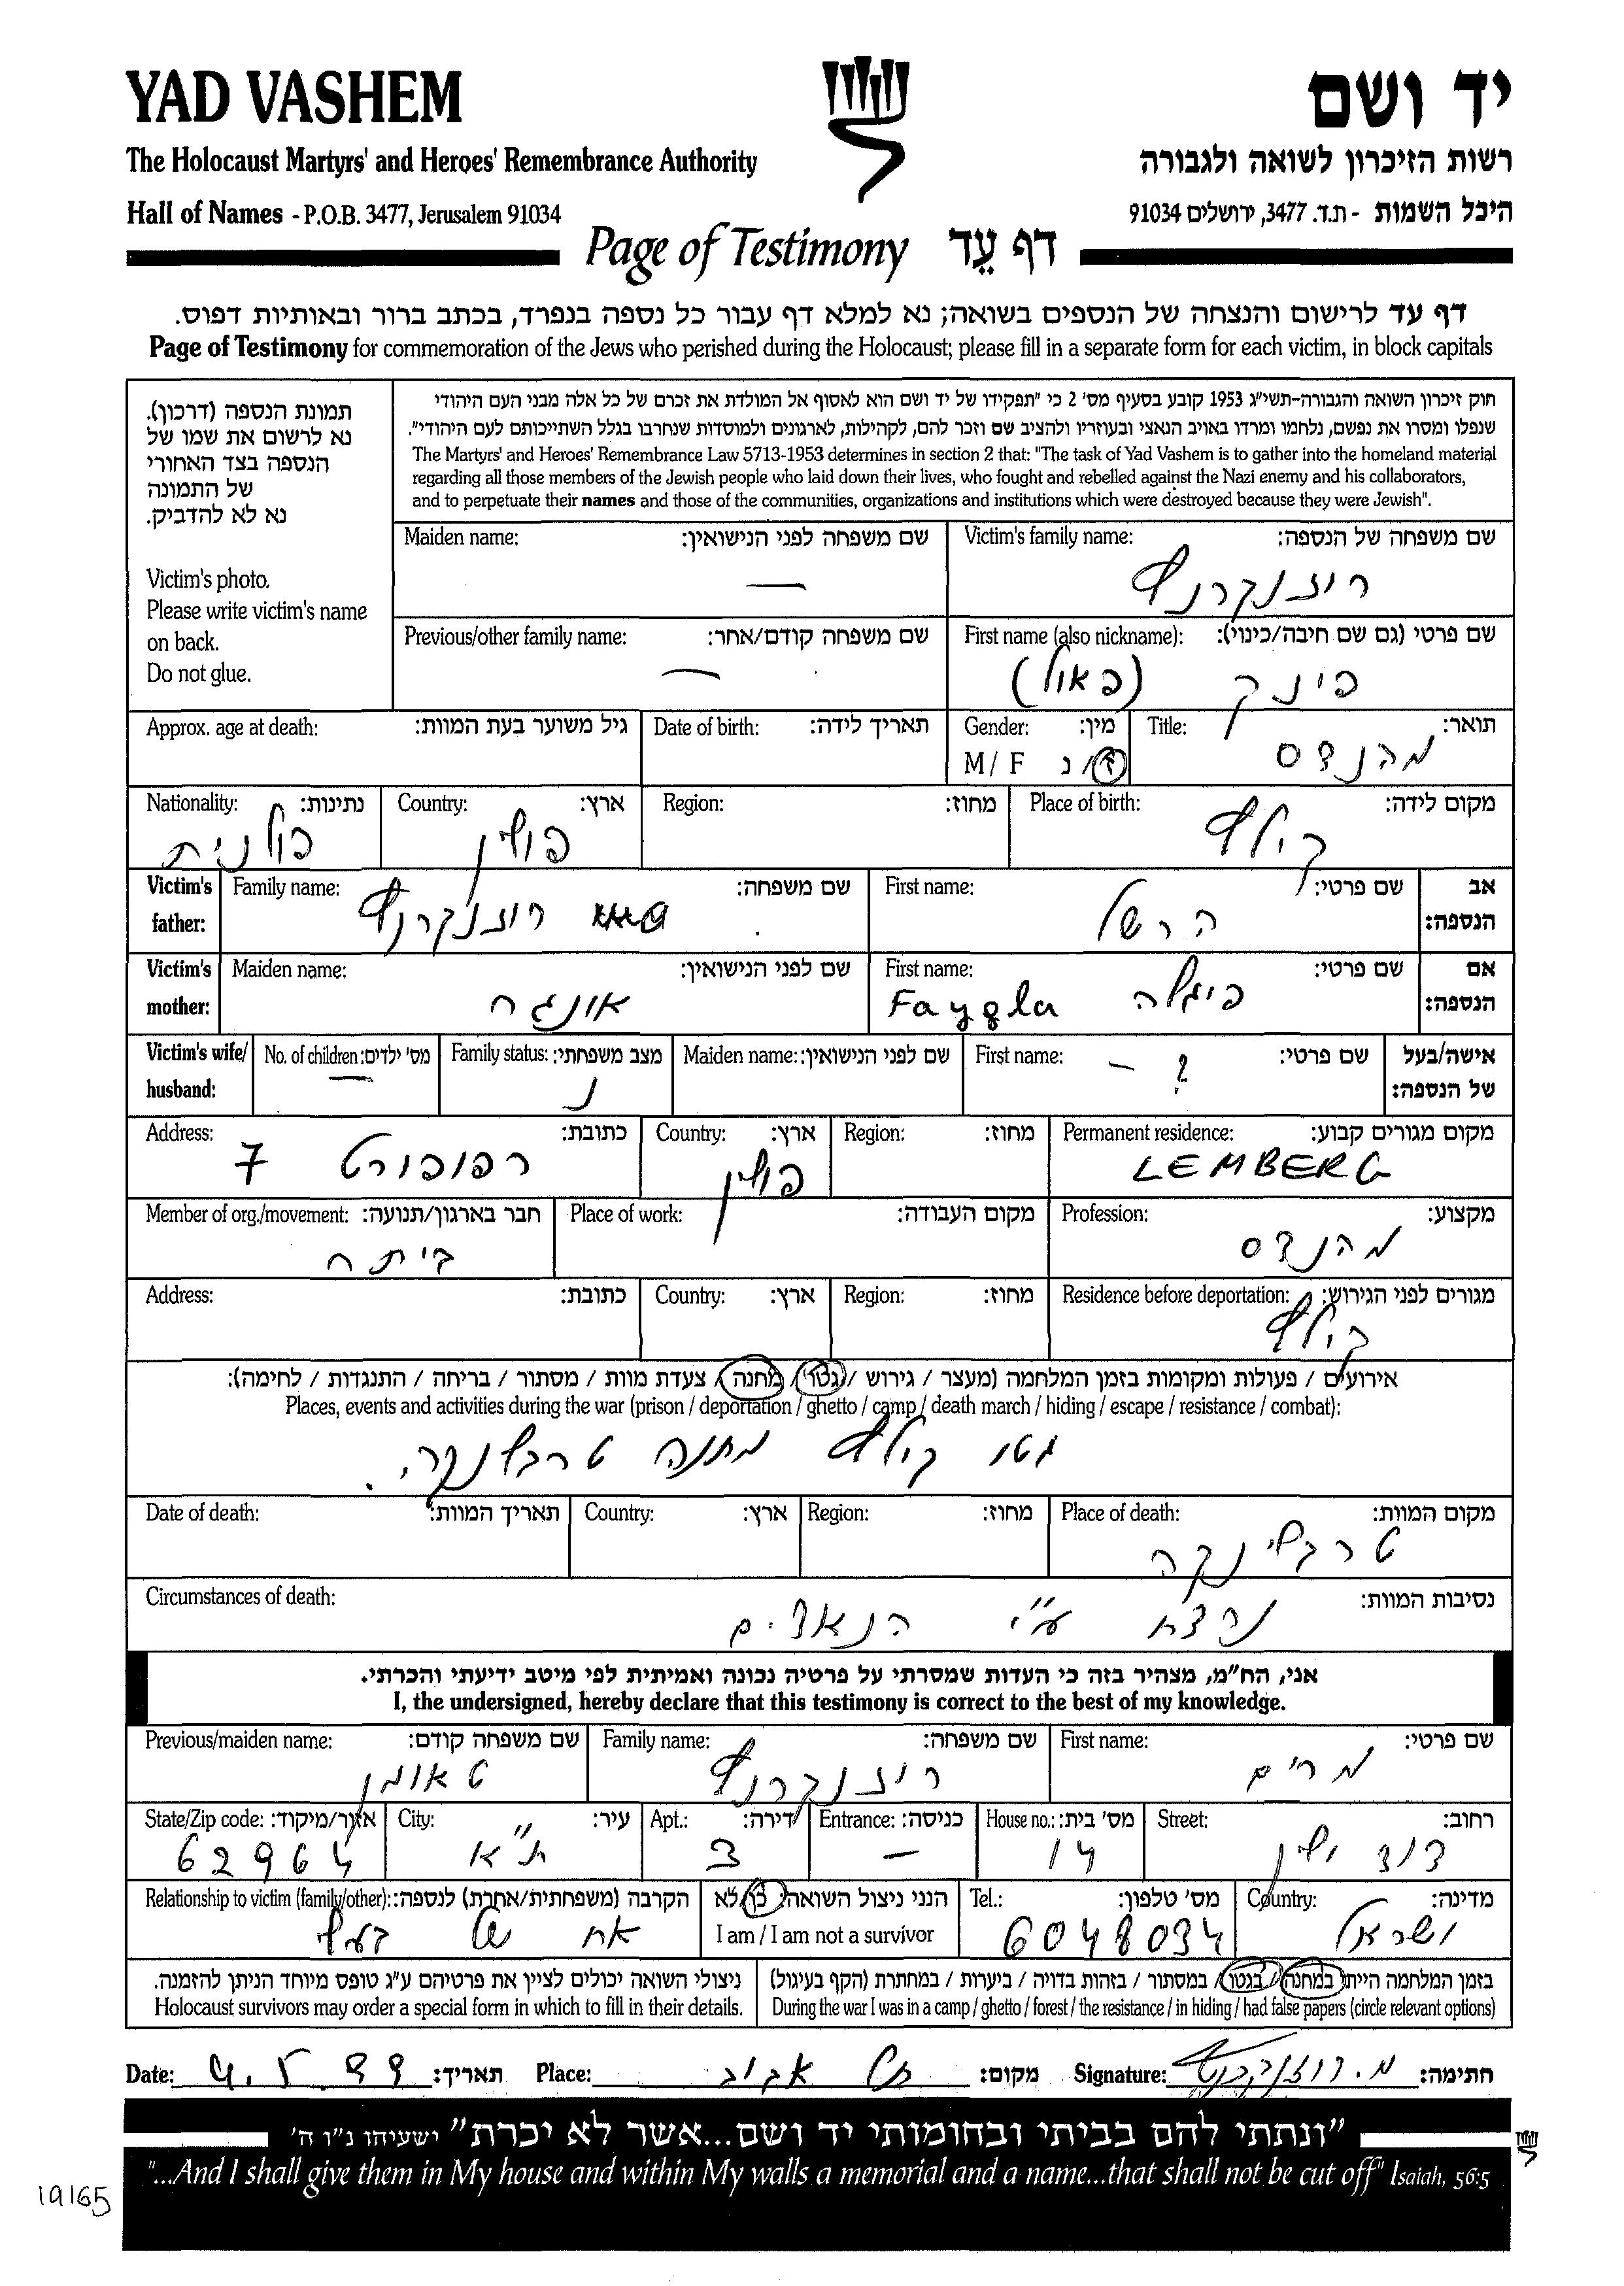 YAD VASHEM
יד ושם
The Holocaust Martyrs' and Heroes' Remembrance Authority
רשות הזיכרון לשואה ולגבורה
Hall of Names - P.O.B. 3477, Jerusalem 91034
היכל השמות - ת.ד. 3477, ירושלים 91034
Page of Testimony דף עֵד
דף עד לרישום והנצחה של הנספים בשואה; נא למלא דף עבור כל נספה בנפרד, בכתב ברור ובאותיות דפוס.
Page of Testimony for commemoration of the Jews who perished during the Holocaust; please fill in a separate form for each victim, in block capitals
תמונת הנספה (דרכון).
נא לרשום את שמו של
הנספה בצד האחורי
של התמונה
נא לא להדביק.
Victim's photo.
Please write victim's name
on back.
Do not glue.
חוק זיכרון השואה והגבורה-תשי"ג 1953 קובע בסעיף מס' 2 כי "תפקידו של יד ושם הוא לאסוף אל המולדת את זכרם של כל אלה מבני העם היהודי
שנפלו ומסרו את נפשם, נלחמו ומרדו באויב הנאצי ובעוזריו ולהציב שם וזכר להם, לקהילות, לארגונים ולמוסדות שנחרבו בגלל השתייכותם לעם היהודי".
The Martyrs' and Heroes' Remembrance Law 5713-1953 determines in section 2 that: "The task of Yad Vashem is to gather into the homeland material
regarding all those members of the Jewish people who laid down their lives, who fought and rebelled against the Nazi enemy and his collaborators,
and to perpetuate their names and those of the communities, organizations and institutions which were destroyed because they were Jewish".
Victim's family name: שם משפחה של הנספה:
רוזנקרנץ
Maiden name: שם משפחה לפני הנישואין:
—
First name (also nickname): שם פרטי (גם שם חיבה/כינוי):
פינק (פאול)
Previous/other family name: שם משפחה קודם/אחר:
—
Title: תואר:
מהנדס
Gender: מין:
M / F ז/נ
Date of birth: תאריך לידה:
Approx. age at death: גיל משוער בעת המוות:
Place of birth: מקום לידה:
קילץ
Region: מחוז:
Country: ארץ:
פולין
Nationality: נתינות:
פולנית
Victim's father: אב הנספה:
First name: שם פרטי:
הרשל
Family name: שם משפחה:
רוזנקרנץ
Victim's mother: אם הנספה:
First name: שם פרטי:
פיגלה Faygla
Maiden name: שם לפני הנישואין:
אונגר
Victim's wife/husband: אישה/בעל של הנספה:
First name: שם פרטי:
? —
Maiden name: שם לפני הנישואין:
Family status: מצב משפחתי:
נ
No. of children: מס' ילדים:
—
Permanent residence: מקום מגורים קבוע:
LEMBERG
Region: מחוז:
Country: ארץ:
פולין
Address: כתובת:
רפופורט 7
Profession: מקצוע:
מהנדס
Place of work: מקום העבודה:
Member of org./movement: חבר בארגון/תנועה:
ביתר
Residence before deportation: מגורים לפני הגירוש:
קילץ
Region: מחוז:
Country: ארץ:
Address: כתובת:
אירועים / פעולות ומקומות בזמן המלחמה (מעצר / גירוש / גטו / מחנה / צעדת מוות / מסתור / בריחה / התנגדות / לחימה):
Places, events and activities during the war (prison / deportation / ghetto / camp / death march / hiding / escape / resistance / combat):
גטו קילץ מחנה טרבלינקה.
Place of death: מקום המוות:
טרבלינקה
Region: מחוז:
Country: ארץ:
Date of death: תאריך המוות:
Circumstances of death: נסיבות המוות:
נרצח ע"י הנאצים
אני, הח"מ, מצהיר בזה כי העדות שמסרתי על פרטיה נכונה ואמיתית לפי מיטב ידיעתי והכרתי.
I, the undersigned, hereby declare that this testimony is correct to the best of my knowledge.
First name: שם פרטי:
מרים
Family name: שם משפחה:
רוזנקרנץ
Previous/maiden name: שם משפחה קודם:
טאומן
Street: רחוב:
דוד ילין
House no.: מס' בית:
14
Entrance: כניסה:
—
Apt.: דירה:
3
City: עיר:
ת"א
State/Zip code: אזור/מיקוד:
62964
Country: מדינה:
ישראל
Tel.: מס' טלפון:
6048034
הנני ניצול השואה: כן/לא
I am / I am not a survivor
Relationship to victim (family/other): הקרבה (משפחתית/אחרת) לנספה:
אח של בעלי
בזמן המלחמה הייתי במחנה / בגטו / במסתור / בזהות בדויה / ביערות / במחתרת (הקף בעיגול)
During the war I was in a camp / ghetto / forest / the resistance / in hiding / had false papers (circle relevant options)
ניצולי השואה יכולים לציין את פרטיהם ע"ג טופס מיוחד הניתן להזמנה.
Holocaust survivors may order a special form in which to fill in their details.
Date: 4.5.99 תאריך: Place: תל אביב מקום: Signature: מ. רוזנקרנץ חתימה:
"ונתתי להם בביתי ובחומותי יד ושם...אשר לא יכרת" ישעיהו נ"ו ה'
"...And I shall give them in My house and within My walls a memorial and a name...that shall not be cut off" Isaiah, 56:5
19165